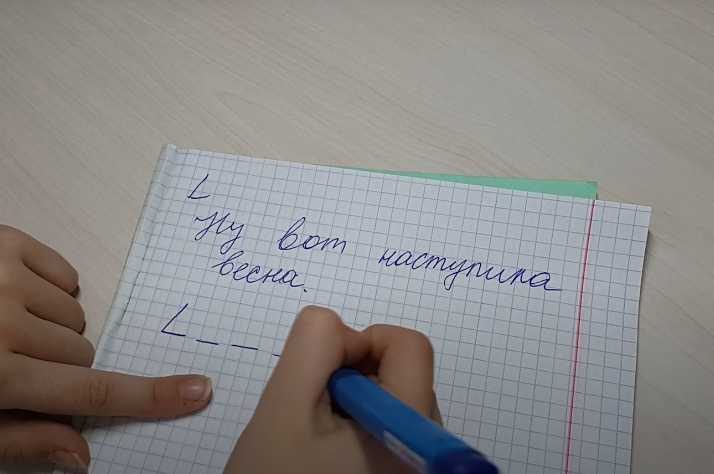 L
Ну вот наступила
весна.
L _ _ _